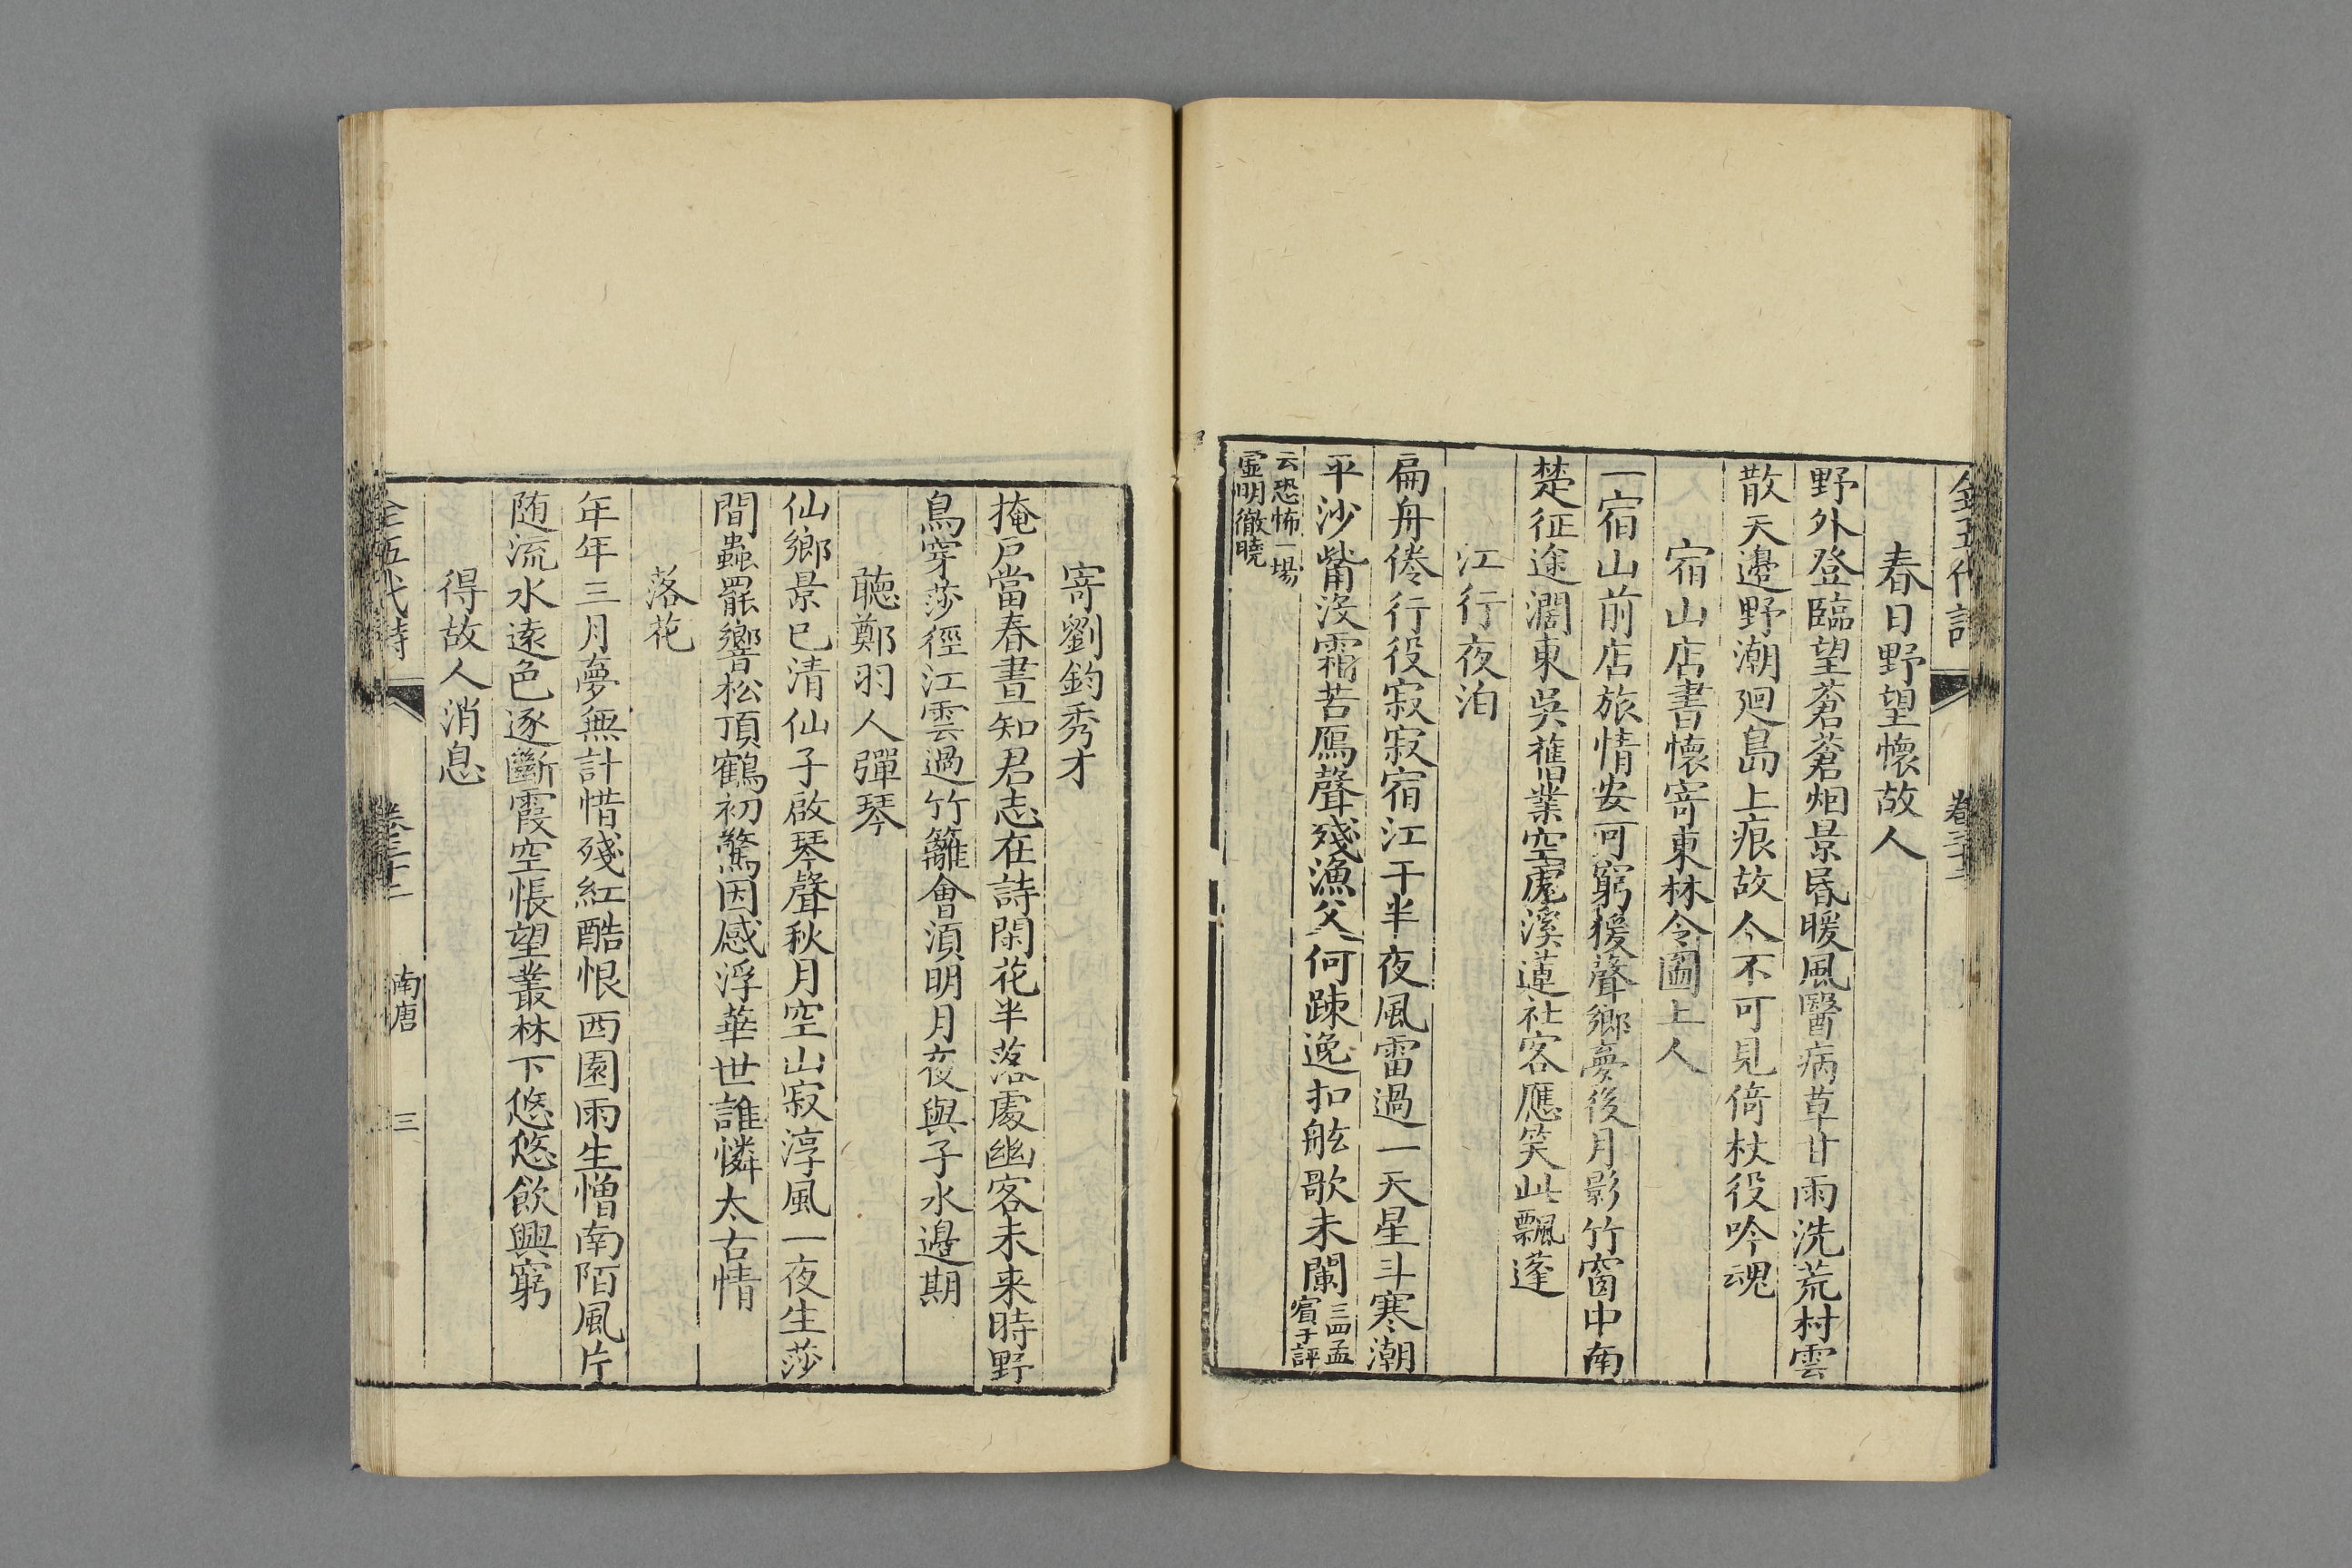 春日野望懷故人
野外登臨望蒼蒼烟景昏暖風醫病草甘雨洗荒村雲
散天邊野潮廻島上痕故人不可見倚杖役吟魂
宿山店書懷寄東林令圖上人
一宿山前店旅情安可窮猨聲鄉夢後月影竹窗中南
楚征途濶東吳舊業空虎溪蓮社客應笑此飄蓬
江行夜泊
扁舟倦行役寂寂宿江干半夜風雷過一天星斗寒潮
平沙觜沒霜苦鴈聲殘漁父何疎逸扣舷歌未闌三四孟賓于評
云恐怖一場虛明徹曉
寄劉鈞秀才
掩戸當春晝知君志在詩閑花半落處幽客未来時野
鳥穿莎徑江雲過竹籬會湏明月夜與子水邊期
聽鄭羽人彈琴
仙鄉景已清仙子啟琴聲秋月空山寂淳風一夜生莎
間蟲罷響松頂鶴初驚因感浮華世誰憐太古情
落花
年年三月夢無計惜殘紅酷恨西園雨生憎南陌風片
随流水遠色逐斷霞空悵望叢林下悠悠飲興窮
得故人消息
全五代詩 卷三十二 南唐 三